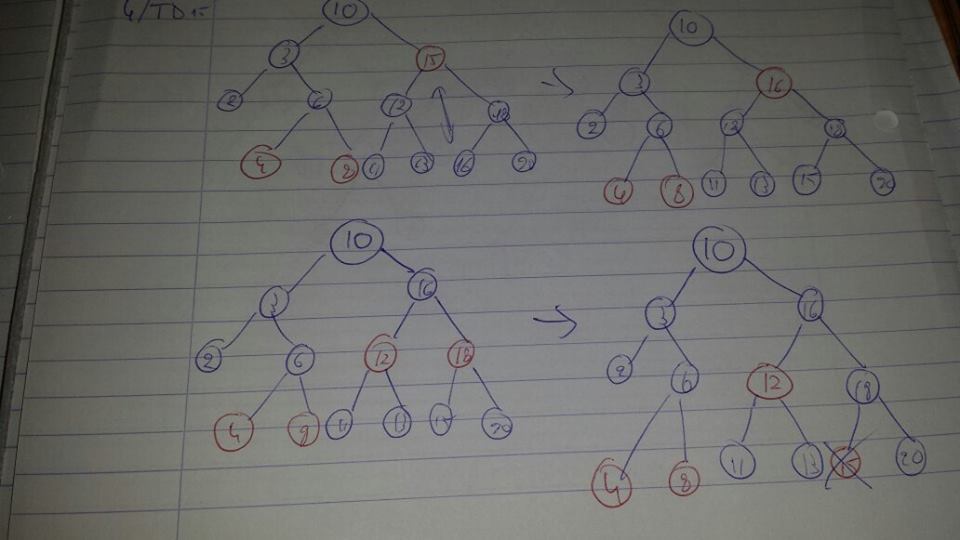 4/TD
10
3 15
2 6 12 18
4 8 11 13 16 20
10
3 16
2 6 12 18
4 8 11 13 15 20
10
3 16
2 6 12 18
4 11 13 15 20
10
3 16
2 6 12 18
4 8 11 13 15 20